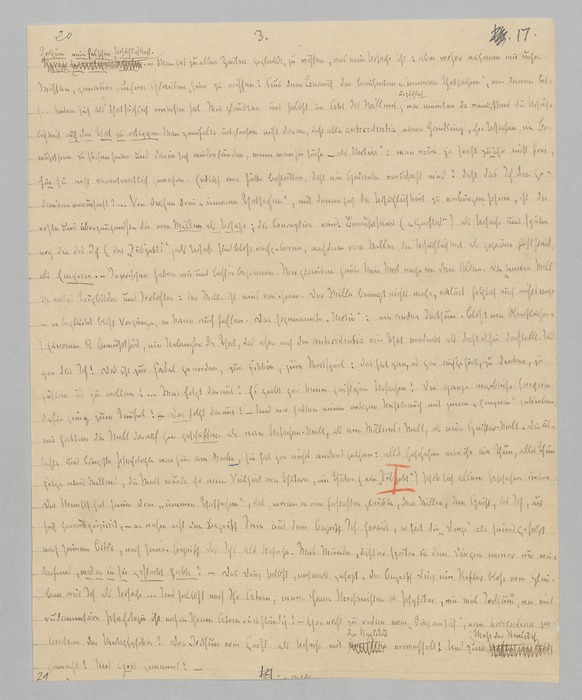 20 3. 17.
Irrthum einer falschen Ursächlichkeit.
— Man hat zu allen Zeiten geglaubt, zu wissen, was eine Ursache ist: aber woher nahmen wir unser
Wissen, genauer, unsern Glauben, hier zu wissen? Aus dem Bereich der berühmten „inneren Thatsachen“, von denen bis-
her keine sich als thatsächlich erwiesen hat. Wir glaubten uns selbst im Akt des Willens ursächlich; wir meinten da wenigstens die Ursäch-
lichkeit auf der That zu ertappen. Man zweifelte insgleichen nicht daran, daß alle antecedentia einer Handlung, ihre Ursachen, im Be-
wußtsein zu suchen seien und darin sich wiederfänden, wenn man sie suche – als „Motive“: man wäre ja sonst zu ihr nicht frei,
für sie nicht verantwortlich gewesen. Endlich wer hätte bestritten, daß ein Gedanke verursacht wird? daß das Ich den Ge-
danken verursacht? ... Von diesen drei „inneren Thatsachen“, mit denen sich die Ursächlichkeit zu verbürgen schien, ist die
erste und überzeugendste die vom Willen als Ursache; die Conception eines Bewußtseins („Geistes“) als Ursache und später
noch die des Ich (des „Subjekts“) als Ursache sind bloß nachgeboren, nachdem vom Willen die Ursächlichkeit als gegeben feststand,
als Empirie ... Inzwischen haben wir uns besser besonnen. Wir glauben heute kein Wort mehr von dem Allen. Die „innere Welt“
ist voller Trugbilder und Irrlichter: der Wille ist eins von ihnen. Der Wille bewegt nichts mehr, erklärt folglich auch nichts mehr
– er begleitet bloß Vorgänge, er kann auch fehlen. Das sogenannte „Motiv“: ein andrer Irrthum. Bloß ein Oberflächen-
phänomen des Bewußtseins, ein Nebenher der That, das eher noch die antecedentia einer That verdeckt als daß es sie darstellt. Und
gar das Ich! Das ist zur Fabel geworden, zur Fiktion, zum Wortspiel: das hat ganz und gar aufgehört, zu denken, zu
fühlen und zu wollen! ... Was folgt daraus? Es giebt gar keine geistigen Ursachen! Die ganze angebliche Empirie
dafür gieng zum Teufel! – Das folgt daraus! – Und wir hatten einen artigen Mißbrauch mit jener „Empirie“ getrieben,
wir hatten die Welt darauf hin geschaffen als eine Ursachen-Welt, als eine Willens-Welt, als eine Geister-Welt. Die äl-
teste und längste Psychologie war hier am Werk, sie hat gar nichts anders gethan: alles Geschehen war ihr ein Thun, alles Thun
Folge eines Willens, die Welt wurde ihr eine Vielheit von Thätern, ein Thäter (ein „Subjekt“) schob sich allem Geschehen unter.
Der Mensch hat seine drei „inneren Thatsachen“, das, woran er am festesten glaubte, den Willen, den Geist, das Ich, aus
sich herausprojicirt, – er nahm erst den Begriff Sein aus dem Begriff Ich heraus, er hat die „Dinge“ als seiend gesetzt
nach seinem Bilde, nach seinem Begriff des Ich als Ursache. Was Wunder, daß er später in den Dingen immer nur wie-
derfand, was er in sie gesteckt hatte? – Das Ding selbst, nochmals gesagt, der Begriff Ding ein Reflex bloß vom Glau-
ben an's Ich als Ursache ... Und selbst noch Ihr Atom, meine Herren Mechanisten und Physiker, wie viel Irrthum, wie viel
rudimentäre Psychologie ist noch in Ihrem Atom rückständig! – Gar nicht zu reden vom „Ding an sich“, vom horrendum pu-
dendum der Metaphysiker! Der Irrthum vom Geist als Ursache mit der Realität verwechselt! Und zum Maaß der Realität
gemacht! Und Gott genannt! –
21